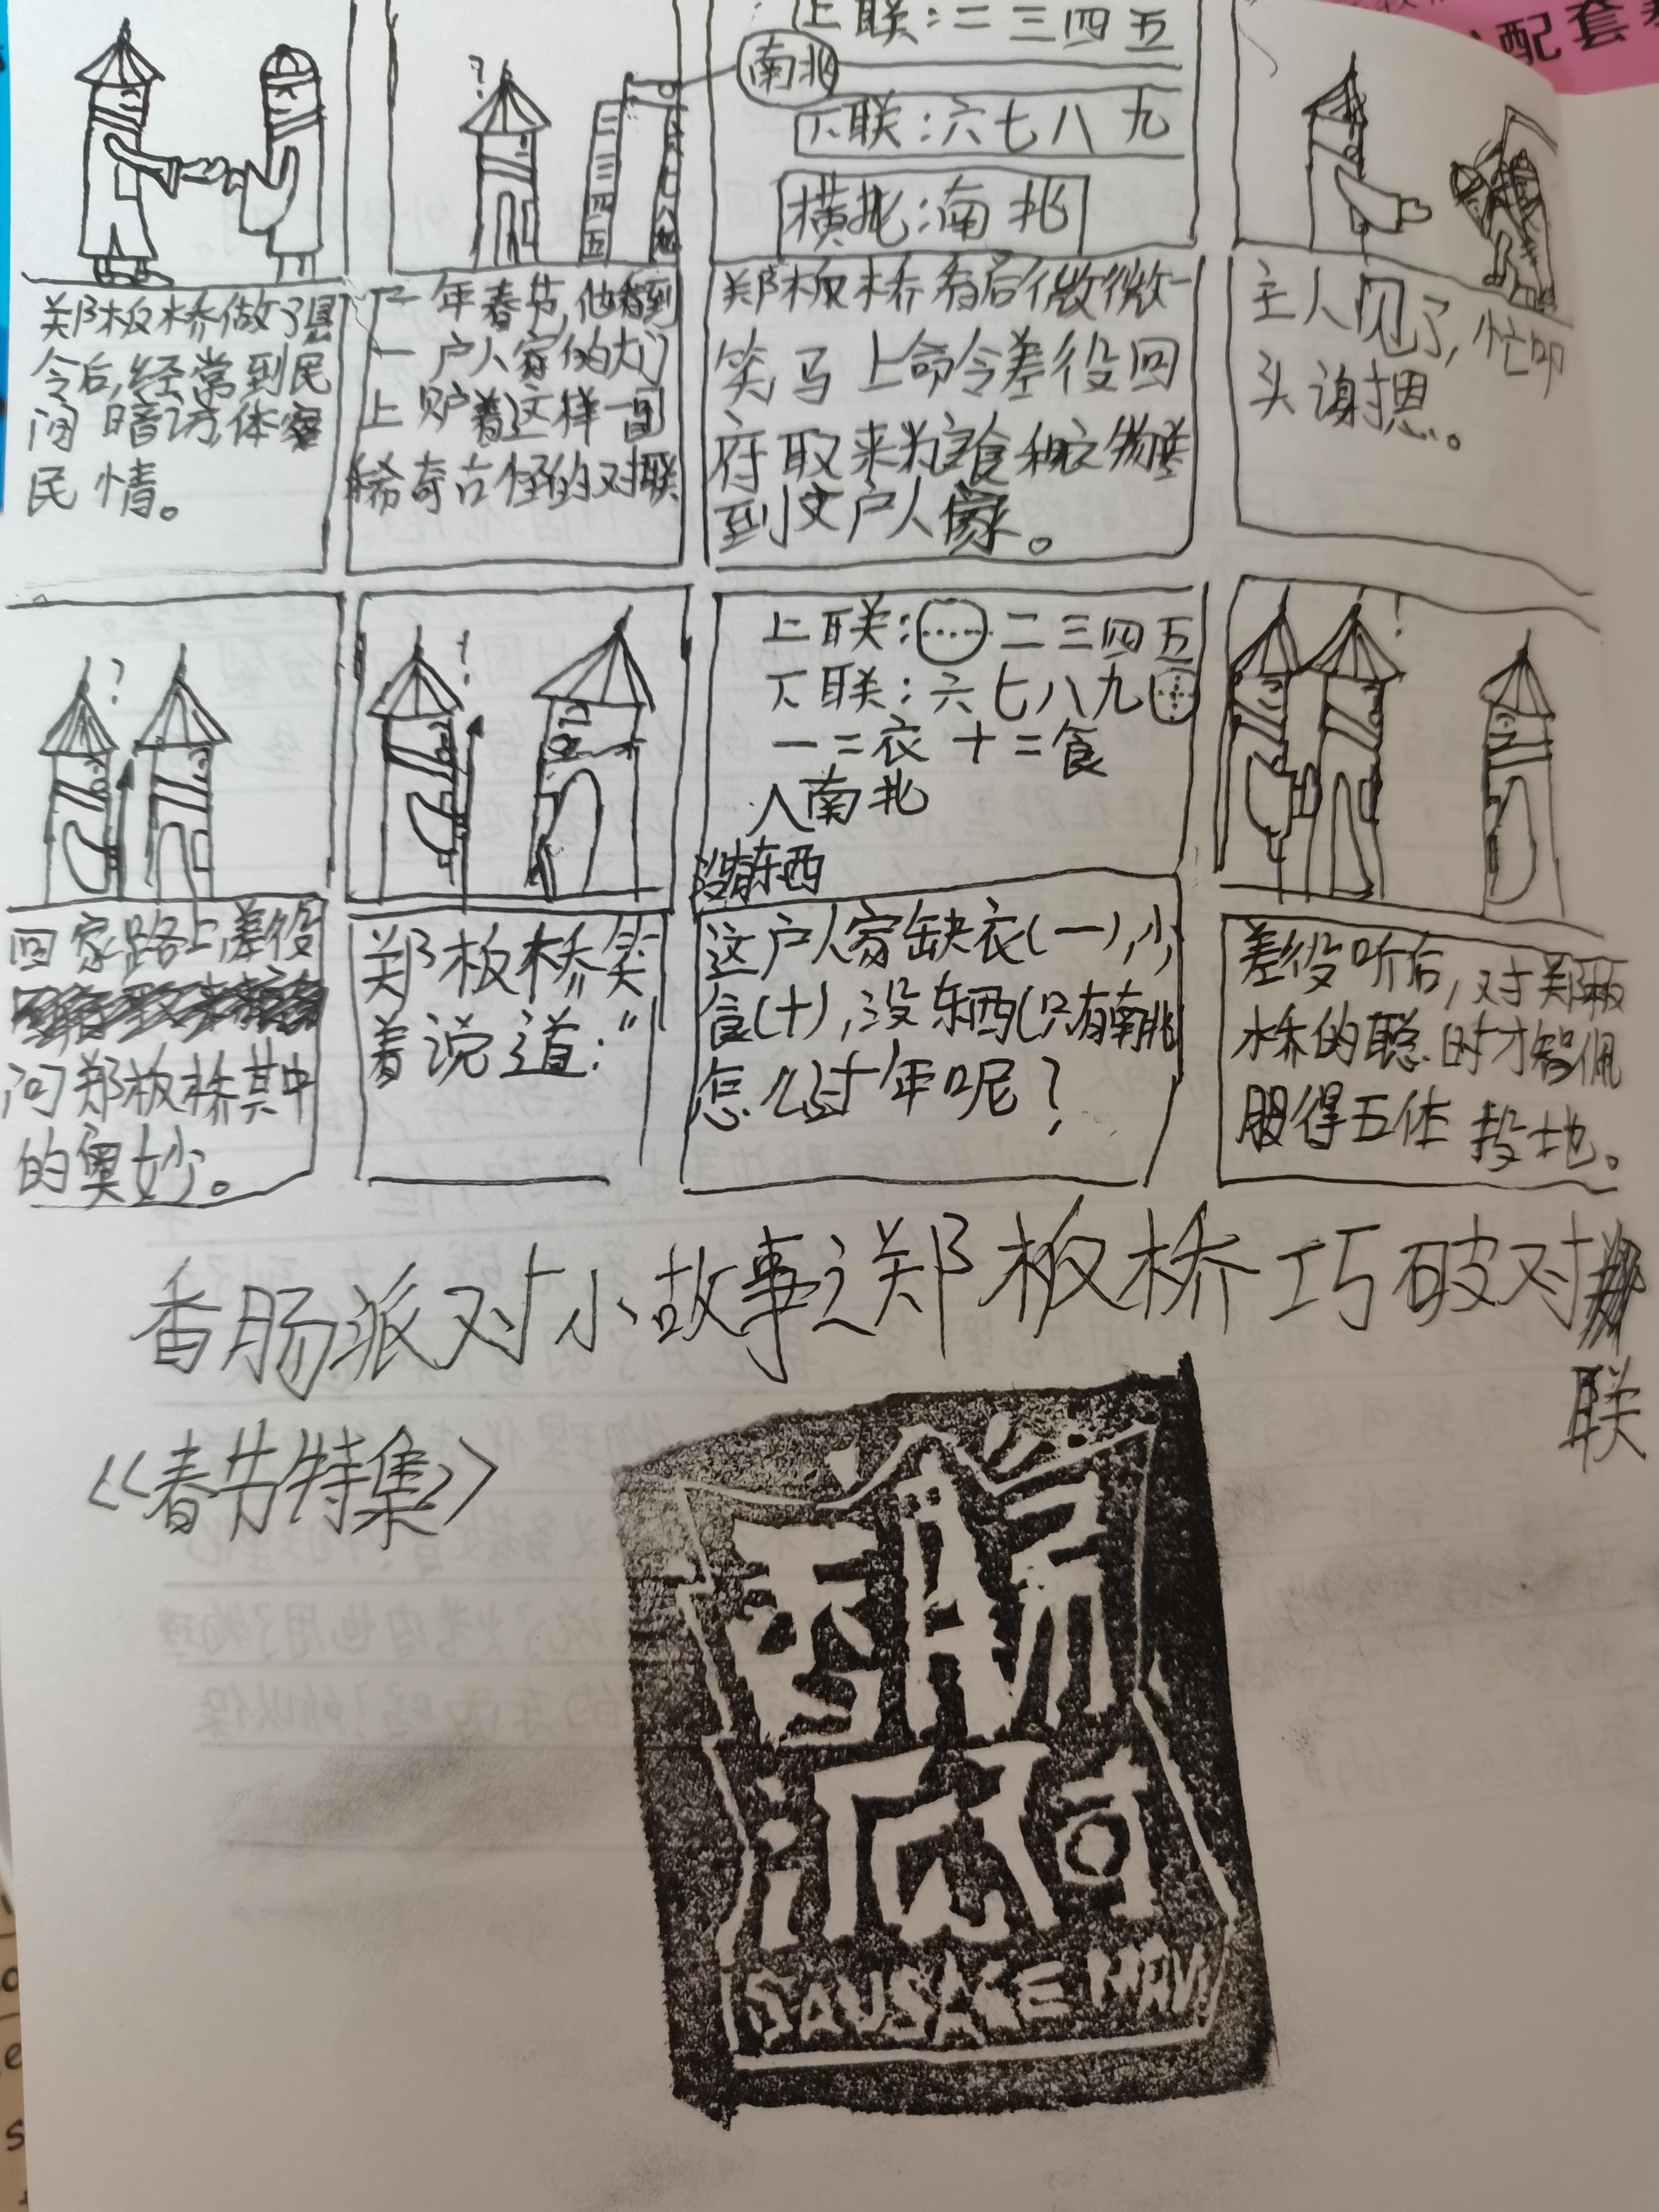 配套
上联：二三四五
南北
下联：六七八九
横批：南北
二三四五
郑板桥做了县
令后,经常到民
间暗访,体察
民情。
一年春节,他看到
一户人家的大门
上贴着这样一副
稀奇古怪的对联
郑板桥看后微微一
笑马上命令差役回
府取来粮食和衣物送
到这户人家。
主人见了,忙叩
头谢恩。
?
!
上联：一二三四五
下联：六七八九十
一=衣 十=食
人南北
没有东西
!
回家路上,差役
问郑板桥其中
的奥妙。
郑板桥笑
着说道："
这户人家缺衣(一),少
食(十),没东西(只有南北)
怎么过年呢？
差役听后,对郑板
桥的聪明才智佩
服得五体投地。
香肠派对小故事之郑板桥巧破对
联
《春节特集》
香肠派对
SAUSAGE MAN